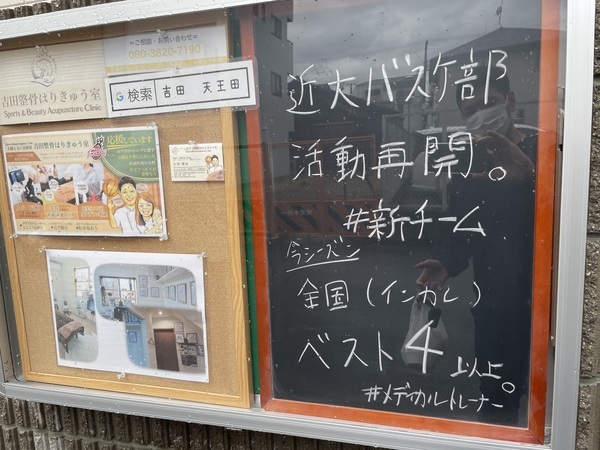 ご相談・お問い合わせ
080-3820-7190
検索 吉田 天王田
吉田整骨はりきゅう室
Sports & Beauty Acupuncture Clinic
応援しています
吉田整骨はりきゅう室
近大バスケ部
活動再開。
#新チーム
今シーズン
全国(インカレ)
ベスト4以上。
#メディカルトレーナー